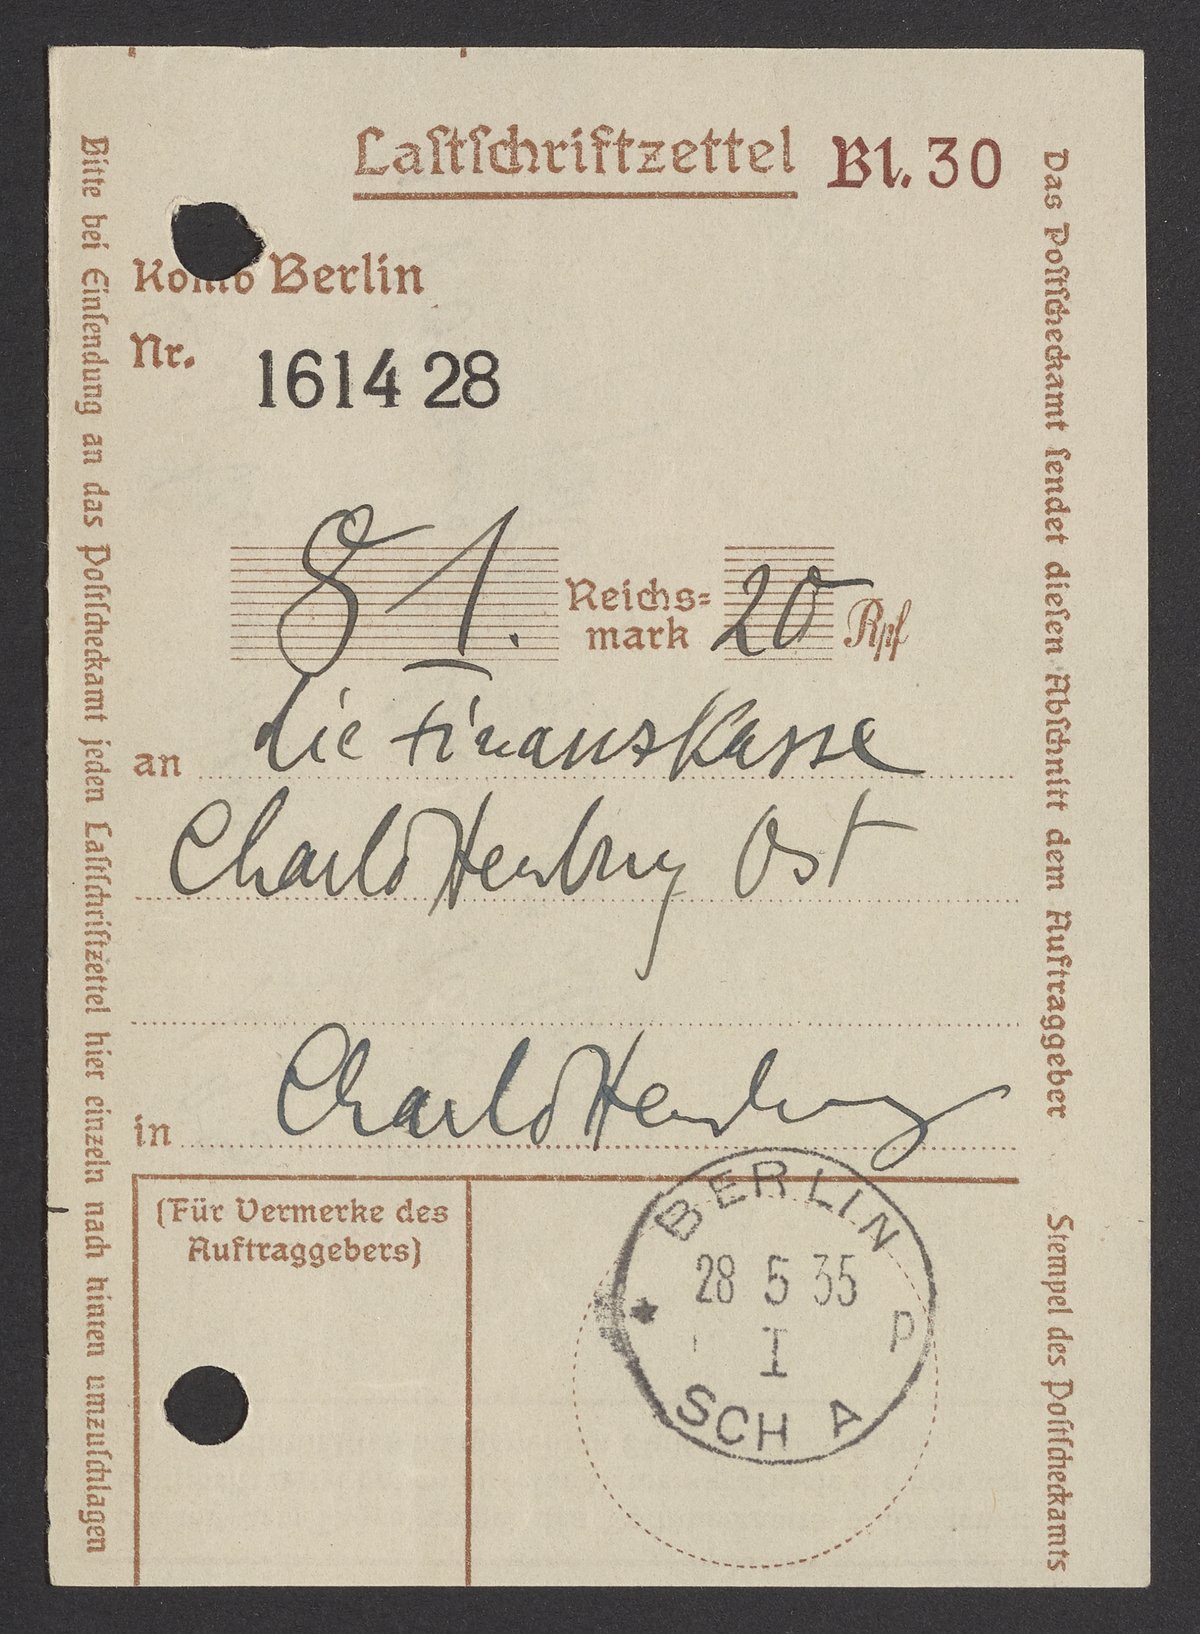 Laſtſchriftzettel Bl. 30
Konto Berlin
Nr. 1614 28
81. Reichs=
mark 20 Rpf
an die Finanzkasse
Charlottenburg Ost
in Charlottenburg
(Für Vermerke des
Auftraggebers)
BERLIN
28 5 35
I P
SCH A
Bitte bei Einſendung an das Poſtſcheckamt jeden Laſtſchriftzettel hier einzeln nach hinten umzuſchlagen
Das Poſtſcheckamt ſendet dieſen Abſchnitt dem Auftraggeber
Stempel des Poſtſcheckamts